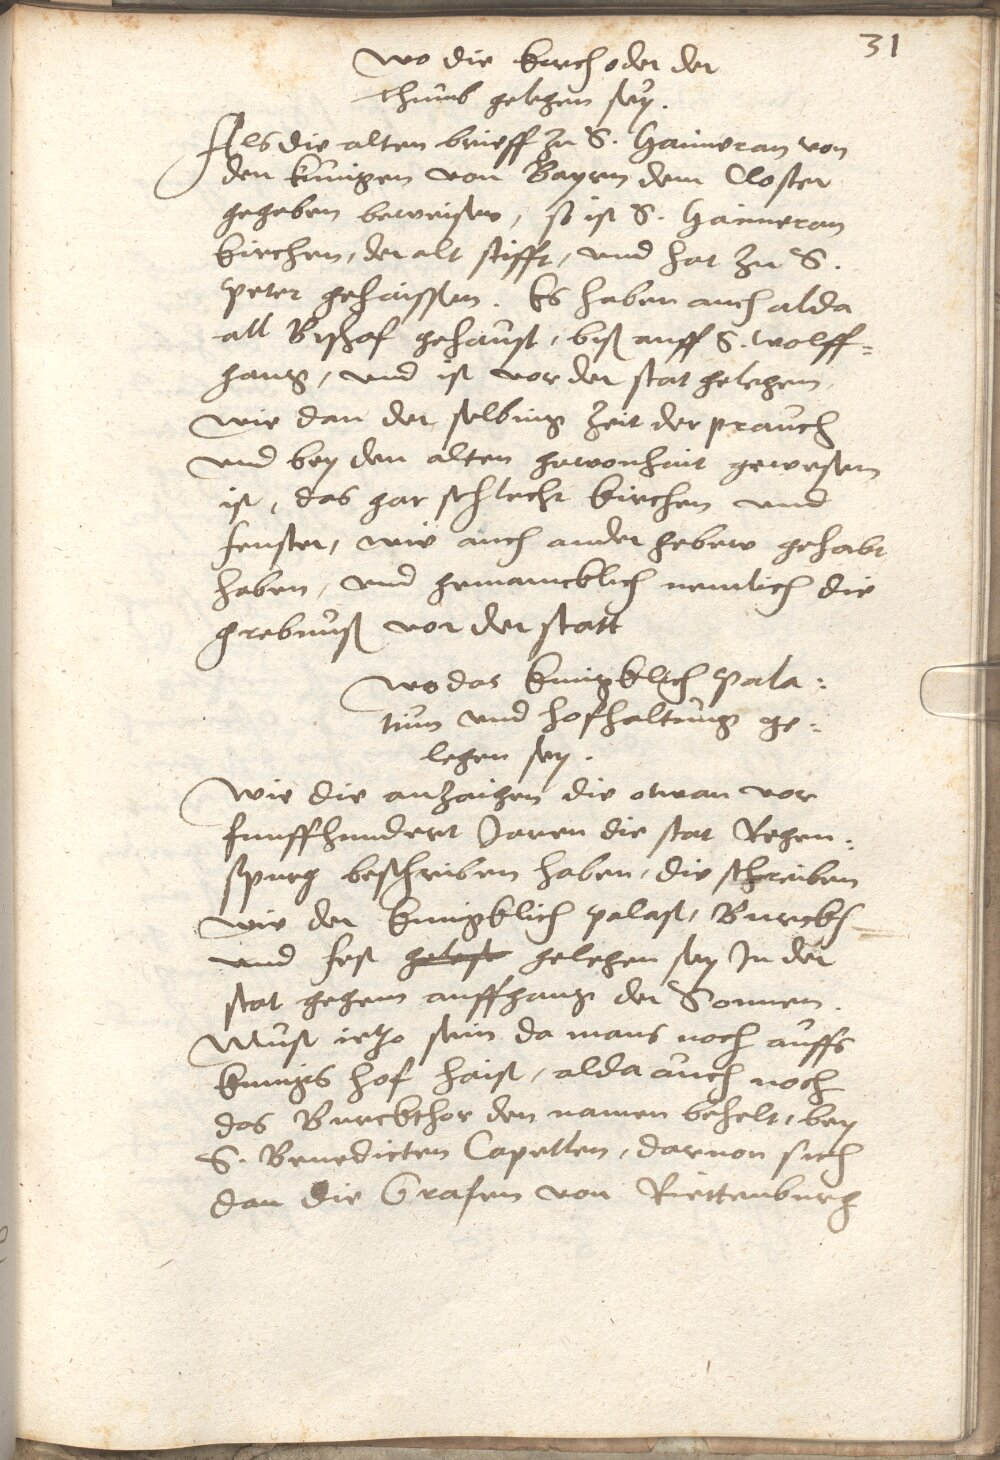 31
Wo die kirch oder der
thumb gelegen sey.
Als die alten brieff zu S. Haimeran von
den kunigen von Bayrn dem Closter
gegeben beweisen, so ist S. Haimeran
kirchen, der alt stifft, und hat zu S.
Peter gehaissen. Es haben auch alda
all Bischof gehaust, biß auff S. Wolff=
gang, und ist vor der stat gelegen,
wie dan der selbing Zeit der prauch
und bey den alten gewonhait gewesen
ist, das gar schlecht kirchen und
fenster, wie auch ander gebew gehabt
haben, und gemaincklich nemlich die
grebnuß vor der statt
Wo das kunigklich Pala=
tium und hofhaltung ge=
legen sey.
Wie die anzaigen die etwan vor
funffhundert Jaren die stat Regen=
spurg beschriben haben, die schreiben
wie der kunigklich palast, Burckh
und fest gelegen sey In der
stat gegem auffgang der Sonnen.
Must ietzo sein da mans noch auffs
kunigs hof haist, alda auch noch
das Burckthor den namen behelt, bey
S. Benedicten Capellen, darvon sich
dan die Grafen von Riettenburg